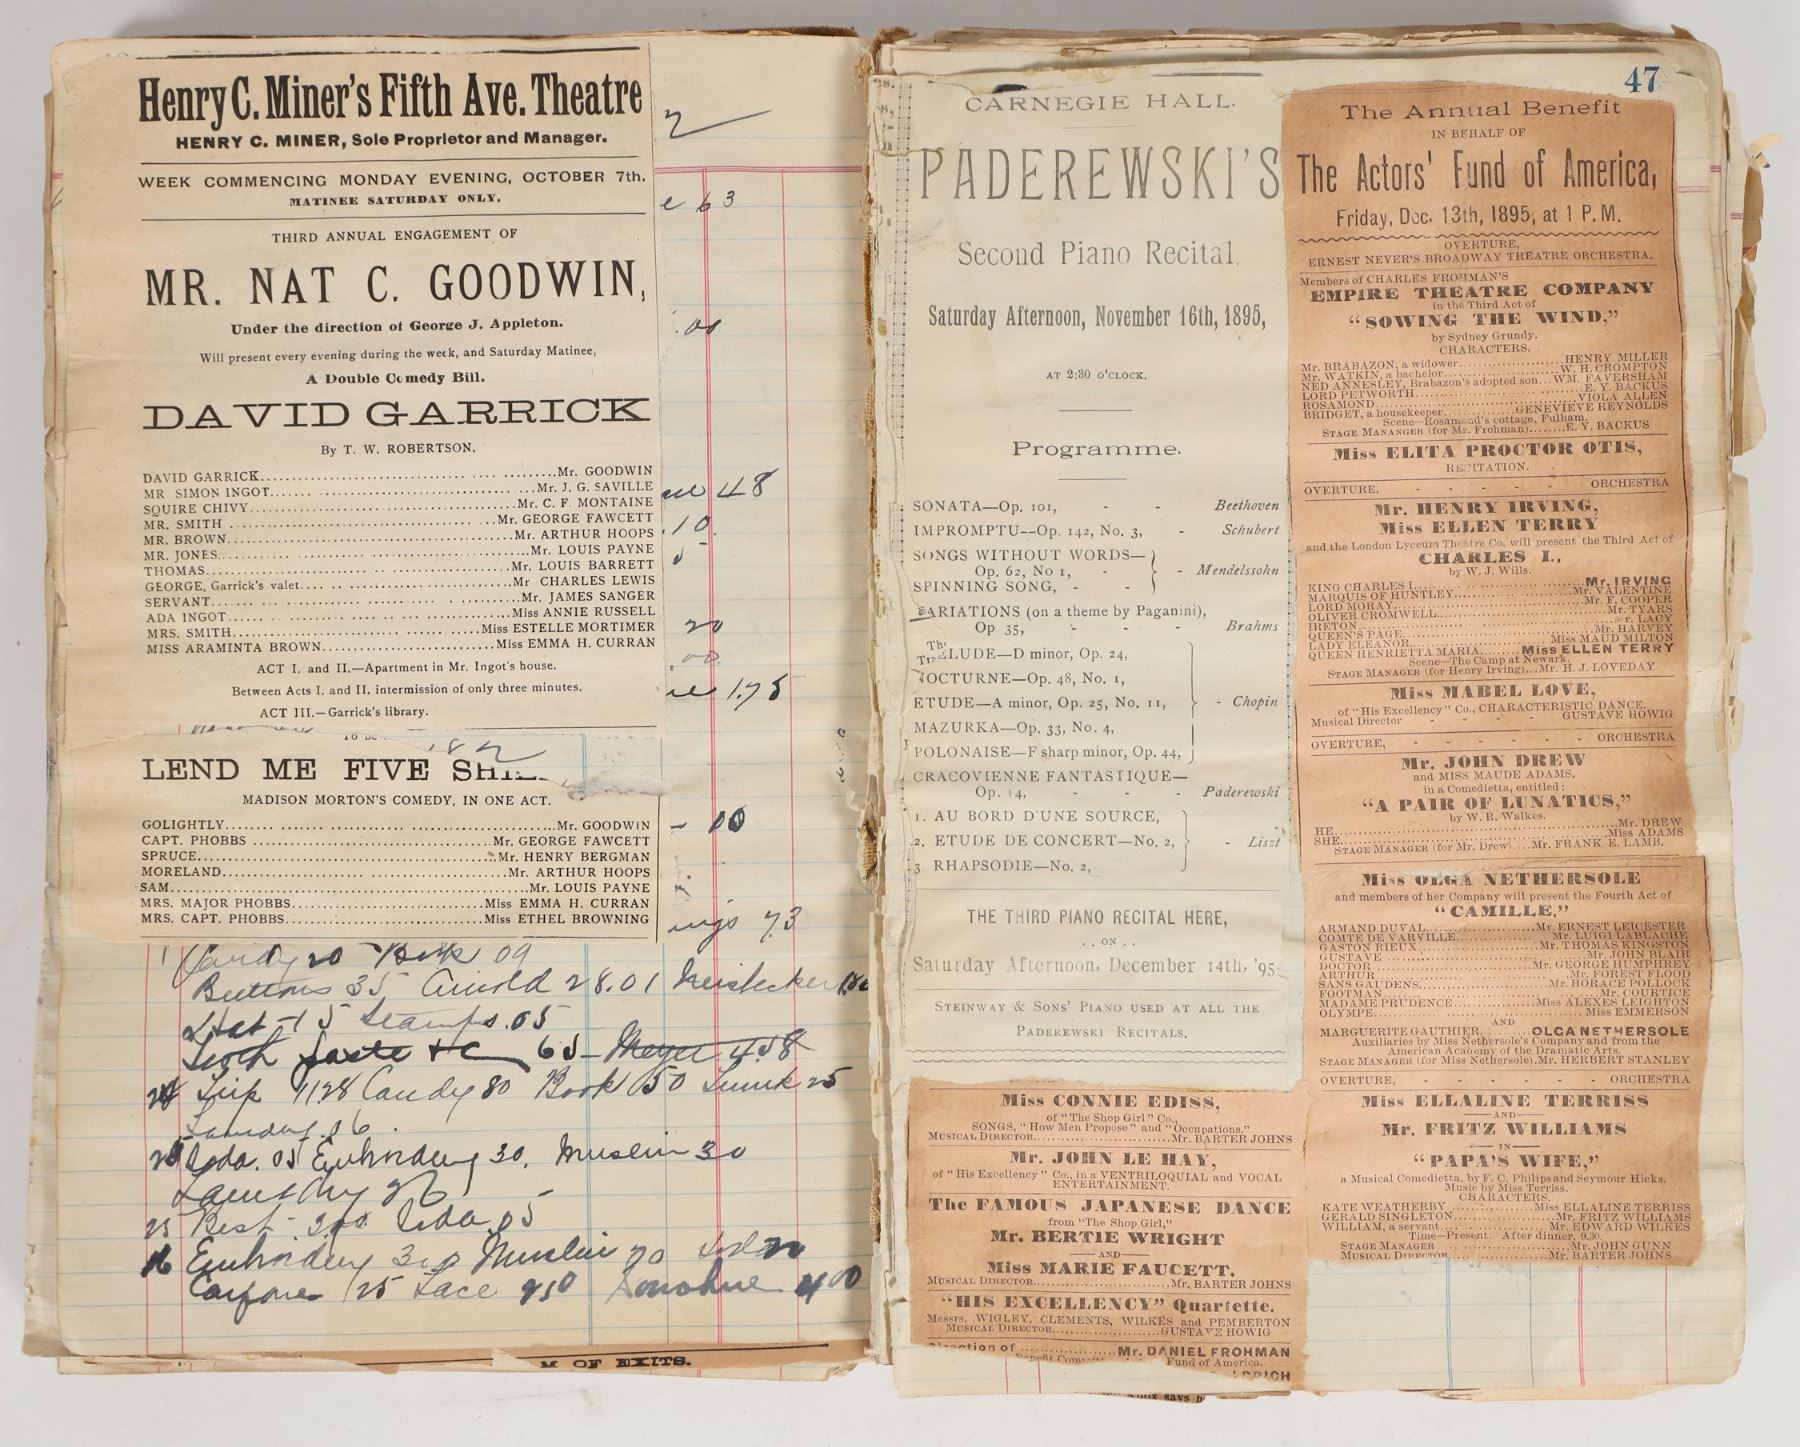 Henry C. Miner's Fifth Ave. Theatre
HENRY C. MINER, Sole Proprietor and Manager.
WEEK COMMENCING MONDAY EVENING, OCTOBER 7th.
MATINEE SATURDAY ONLY.
THIRD ANNUAL ENGAGEMENT OF
MR. NAT C. GOODWIN,
Under the direction of George J. Appleton.
Will present every evening during the week, and Saturday Matinee,
A Double Comedy Bill.
DAVID GARRICK
By T. W. ROBERTSON.
DAVID GARRICK.....Mr. GOODWIN
MR SIMON INGOT.....Mr. J. G. SAVILLE
SQUIRE CHIVY.....Mr. C. F. MONTAINE
MR. SMITH.....Mr. GEORGE FAWCETT
MR. BROWN.....Mr. ARTHUR HOOPS
MR. JONES.....Mr. LOUIS PAYNE
THOMAS.....Mr. LOUIS BARRETT
GEORGE, Garrick's valet.....Mr CHARLES LEWIS
SERVANT.....Mr. JAMES SANGER
ADA INGOT.....Miss ANNIE RUSSELL
MRS. SMITH.....Miss ESTELLE MORTIMER
MISS ARAMINTA BROWN.....Miss EMMA H. CURRAN
ACT I. and II.—Apartment in Mr. Ingot's house.
Between Acts I. and II. intermission of only three minutes.
ACT III.—Garrick's library.
LEND ME FIVE
MADISON MORTON'S COMEDY, IN ONE ACT.
GOLIGHTLY.....Mr. GOODWIN
CAPT. PHOBBS.....Mr. GEORGE FAWCETT
SPRUCE.....Mr. HENRY BERGMAN
MORELAND.....Mr. ARTHUR HOOPS
SAM.....Mr. LOUIS PAYNE
MRS. MAJOR PHOBBS.....Miss EMMA H. CURRAN
MRS. CAPT. PHOBBS.....Miss ETHEL BROWNING
63
.00
48
.10
20
.00
1.75
00
73
Candy 20 Book 09
Buttons 35 Arnold 28.01
Hat 15 Stamps .05
Tooth paste + c 65 Meyer 4.58
24 Trip 11.28 Candy 80 Book 50 Trunk 25
Laundry .06
25 Soda .05 Embroidery 30, Muslin 30
Laundry 26
25 Best 3.00 Soda .05
26 Embroidery Muslin 70
Carfare 25 Lace 950 Donohue 400
M OF EXITS.
47
CARNEGIE HALL.
PADEREWSKI'S
Second Piano Recital,
Saturday Afternoon, November 16th, 1895,
AT 2:30 O'CLOCK.
Programme.
SONATA—Op. 101, - - Beethoven
IMPROMPTU--Op. 142, No. 3, - Schubert
SONGS WITHOUT WORDS—
Op. 62, No 1, - - Mendelssohn
SPINNING SONG, - -
VARIATIONS (on a theme by Paganini),
Op 35, - - - Brahms
LUDE—D minor, Op. 24,
NOCTURNE—Op. 48, No. 1,
ETUDE—A minor, Op. 25, No. 11, - Chopin
MAZURKA—Op. 33, No. 4,
POLONAISE—F sharp minor, Op. 44,
CRACOVIENNE FANTASTIQUE—
Op. 14, - - - Paderewski
1. AU BORD D'UNE SOURCE,
2. ETUDE DE CONCERT—No. 2, - Liszt
3 RHAPSODIE—No. 2,
THE THIRD PIANO RECITAL HERE,
..ON..
Saturday Afternoon, December 14th, '95.
STEINWAY & SONS' PIANO USED AT ALL THE
PADEREWSKI RECITALS.
Miss CONNIE EDISS,
of "The Shop Girl" Co.,
SONGS, "How Men Propose" and "Occupations."
MUSICAL DIRECTOR.....Mr. BARTER JOHNS
Mr. JOHN LE HAY,
of "His Excellency" Co., in a VENTRILOQUIAL and VOCAL
ENTERTAINMENT.
The FAMOUS JAPANESE DANCE
from "The Shop Girl,"
Mr. BERTIE WRIGHT
—AND—
Miss MARIE FAUCETT.
MUSICAL DIRECTOR.....Mr. BARTER JOHNS
"HIS EXCELLENCY" Quartette.
Messrs. WIGLEY, CLEMENTS, WILKES and PEMBERTON
MUSICAL DIRECTOR.....GUSTAVE HOWIG
Direction of.....Mr. DANIEL FROHMAN
Fund of America.
The Annual Benefit
IN BEHALF OF
The Actors' Fund of America,
Friday, Dec. 13th, 1895, at 1 P.M.
OVERTURE,
ERNEST NEYER'S BROADWAY THEATRE ORCHESTRA.
Members of CHARLES FROHMAN'S
EMPIRE THEATRE COMPANY
in the Third Act of
"SOWING THE WIND,"
by Sydney Grundy.
CHARACTERS.
Mr. BRABAZON, a widower.....HENRY MILLER
Mr. WATKIN, a bachelor.....W. H. CROMPTON
NED ANNESLEY, Brabazon's adopted son...WM. FAVERSHAM
LORD PETWORTH.....E. Y. BACKUS
ROSAMOND.....VIOLA ALLEN
BRIDGET, a housekeeper.....GENEVIEVE REYNOLDS
Scene—Rosamond's cottage, Fulham.
STAGE MANANGER (for Mr. Frohman).....E. Y. BACKUS
Miss ELITA PROCTOR OTIS,
RECITATION.
OVERTURE, - - - - - ORCHESTRA
Mr. HENRY IRVING,
Miss ELLEN TERRY
and the London Lyceum Theatre Co. will present the Third Act of
CHARLES I.,
by W. J. Wills.
KING CHARLES I.....Mr. IRVING
MARQUIS OF HUNTLEY.....Mr. VALENTINE
LORD MORAY.....Mr. F. COOPER
OLIVER CROMWELL.....Mr. TYARS
IRETON.....Mr. LACY
QUEEN'S PAGE.....Mr. HARVEY
LADY ELEANOR.....Miss MAUD MILTON
QUEEN HENRIETTA MARIA.....Miss ELLEN TERRY
Scene—The Camp at Newark.
STAGE MANAGER (for Henry Irving)...Mr. H. J. LOVEDAY
Miss MABEL LOVE,
of "His Excellency" Co., CHARACTERISTIC DANCE.
Musical Director - - - - GUSTAVE HOWIG
OVERTURE, - - - - - - ORCHESTRA
Mr. JOHN DREW
and MISS MAUDE ADAMS,
in a Comedietta, entitled:
"A PAIR OF LUNATICS,"
by W. R. Walkes.
HE.....Mr. DREW
SHE.....Miss ADAMS
STAGE MANAGER (for Mr. Drew)....Mr. FRANK E. LAMB.
Miss OLGA NETHERSOLE
and members of her Company will present the Fourth Act of
"CAMILLE,"
ARMAND DUVAL.....Mr. ERNEST LEICESTER
COMTE DE VARVILLE.....Mr. LUIGI LABLACHE
GASTON RIEUX.....Mr. THOMAS KINGSTON
GUSTAVE.....Mr. JOHN BLAIR
DOCTOR.....Mr. GEORGE HUMPHREY
ARTHUR.....Mr. FOREST FLOOD
SANS GAUDENS.....Mr. HORACE POLLOCK
FOOTMAN.....Mr. COURTICE
MADAME PRUDENCE.....Miss ALEXES LEIGHTON
OLYMPE.....Miss EMMERSON
AND
MARGUERITE GAUTHIER.....OLGA NETHERSOLE
Auxiliaries by Miss Nethersole's Company and from the
American Academy of the Dramatic Arts.
STAGE MANAGER (for Miss Nethersole), Mr. HERBERT STANLEY
OVERTURE, - - - - - ORCHESTRA
Miss ELLALINE TERRISS
—AND—
Mr. FRITZ WILLIAMS
—IN—
"PAPA'S WIFE,"
a Musical Comedietta, by F. C. Philips and Seymour Hicks.
Music by Miss Terriss.
CHARACTERS.
KATE WEATHERBY.....Miss ELLALINE TERRISS
GERALD SINGLETON.....Mr. FRITZ WILLIAMS
WILLIAM, a servant.....Mr. EDWARD WILKES
Time—Present. After dinner, 9.30.
STAGE MANAGER.....Mr. JOHN GUNN
MUSICAL DIRECTOR.....Mr. BARTER JOHNS